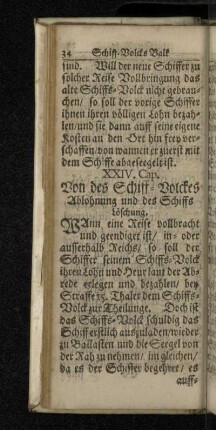 34 Schiff-Volcks Balk
sind. Will der neue Schiffer zu
solcher Reise Vollbringung das
alte Schiffs-Volck nicht gebrau-
chen/ so soll der vorige Schiffer
ihnen ihren völligen Lohn bezah-
len/und sie dann auff seine eigene
Kosten an den Ort hin frey ver-
schaffen/von wannen er zuerst mit
dem Schiffe abgesegelt ist.
XXIV. Cap.
Von des Schiff-Volckes
Ablohnung und des Schiffs
Löschung.
WAnn eine Reise vollbracht
und geendiget ist/ in- oder
ausserhalb Reichs/ so soll der
Schiffer seinem Schiffs-Volck
ihren Lohn und Heur laut der Ab-
rede erlegen und bezahlen/ bey
Straffe 25. Thaler dem Schiffs-
Volck zur Theilunge. Doch ist
das Schiffs-Volck schuldig das
Schiff erstlich auszuladen/wieder
zu Ballasten und die Seegel von
der Rah zu nehmen/ imgleichen/
da es der Schiffer begehret/ es
auff-